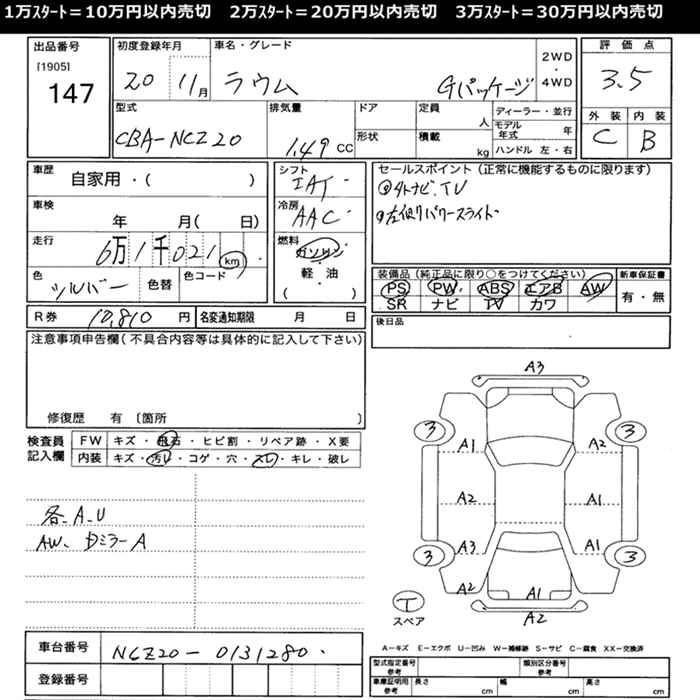 1万ｽﾀｰﾄ＝10万円以内売切　2万ｽﾀｰﾄ＝20万円以内売切　3万ｽﾀｰﾄ＝30万円以内売切
出品番号
[1905]
147
初度登録年月
20 11月
車名・グレード
ラウム Gパッケージ
2WD
・
4WD
評価点
3.5
型式
CBA-NCZ20
排気量
1.49 CC
ドア
形状
定員 人
積載 kg
ディーラー・並行
モデル年式 年
ハンドル 左・右
外装 内装
C B
車歴
自家用・( )
車検
年 月( 日)
走行
6万1千021 km
色
シルバー
色替
色コード
シフト
IAT
冷房
AAC
燃料
ガソリン
・
軽・油
( )
セールスポイント (正常に機能するものに限ります)
タトナビ、TV
左側パワースライト
装備品 (純正品に限り○をつけてください)
PS PW ABS エアB AW
SR ナビ TV カワ
新車保証書
有・無
R券 10,810 円
名変通知期限 月 日
後日品
注意事項申告欄(不具合内容等は具体的に記入して下さい)
修復歴 有 〔箇所 〕
検査員
記入欄
FW キズ・飛石・ヒビ割・リペア跡・X要
内装 キズ・汚レ・コゲ・穴・スレ・キレ・破レ
各、A、U
AW、Dミラー A
A3
3 3
A1 A2
A2 A1
A3 A1
3 3
A2 A1
A2
T
スペア
A－キズ E－エクボ U－凹み W－補修跡 S－サビ C－腐食 XX－交換済
車台番号 NCZ20-0131280
登録番号
型式指定番号
参考
類別区分番号
参考
車庫証明用
参考
長さ cm 幅 cm 高さ cm